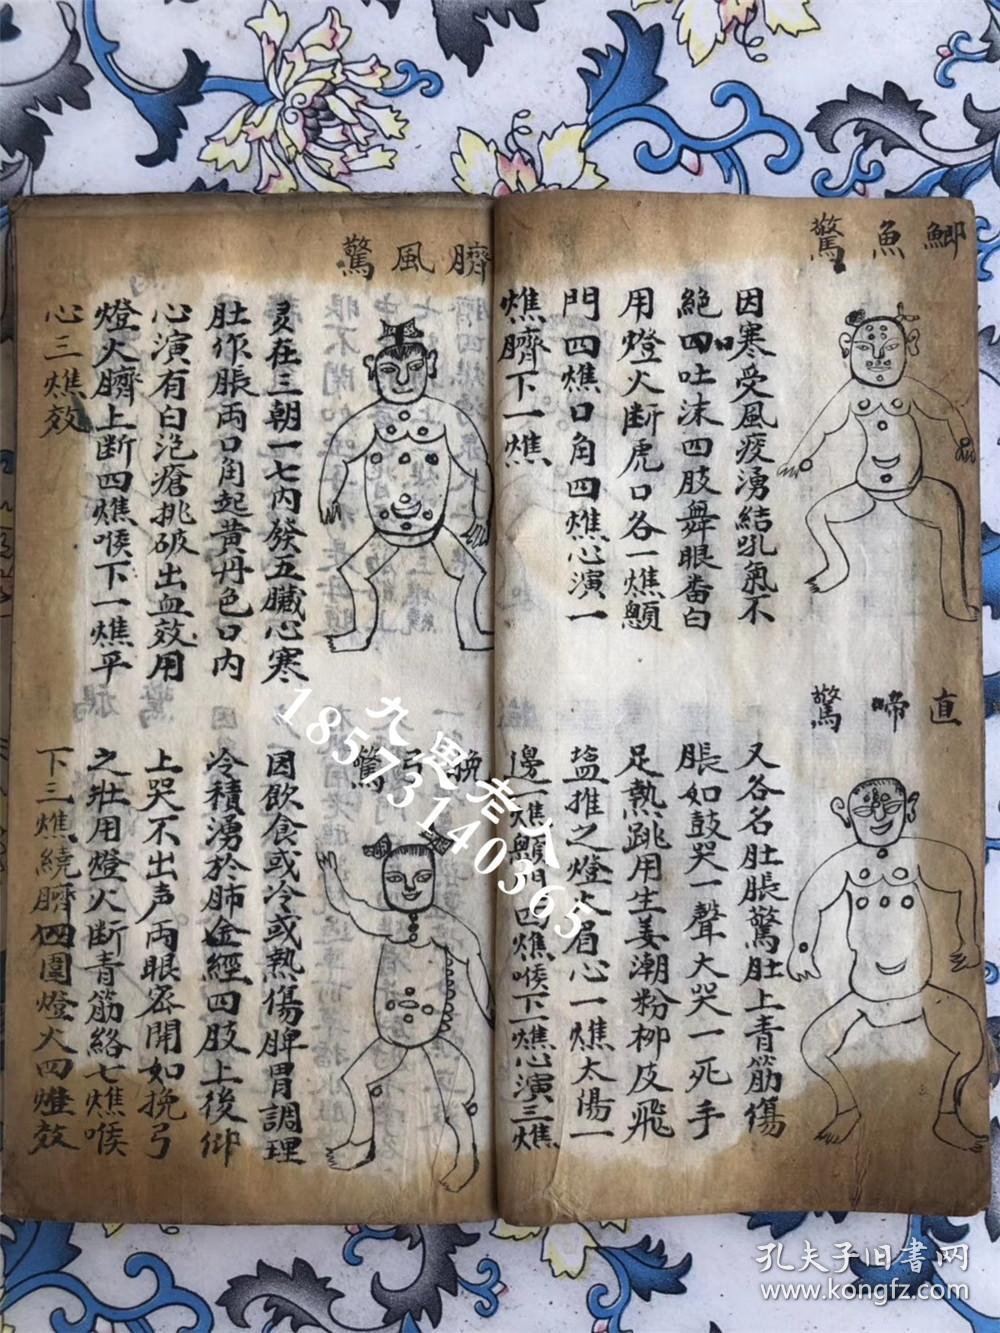 鯽魚驚
因寒受風痰湧結吼氣不
絕口四吐沫四肢舞眼畨白
用燈火断虎口各一燋顖
門四燋口角四燋心演一
燋臍下一燋
直啼驚
又各名肚脹驚肚上青筋傷
脹如鼓哭一聲大哭一死手
足熱跳用生姜潮粉柳皮飛
塩推之燈火眉心一燋太陽一
邊一燋顖門四燋喉下一燋心演三燋
臍風驚
灵在三朝一七內發五臟心寒
肚作脹両口角起黄丹色口内
心演有白泡瘡挑破出血效用
燈火臍上断四燋喉下一燋平
心三燋效
挽弓驚
因飲食或冷或熱傷脾胃調理
冷積湧於肺金經四肢上後仰
上哭不出声両眼宻開如挽弓
之壯用燈火断青筋絡七燋喉
下三燋繞臍四圍燈火四燋效
九思老人
18573140365
孔夫子旧書网
www.kongfz.com